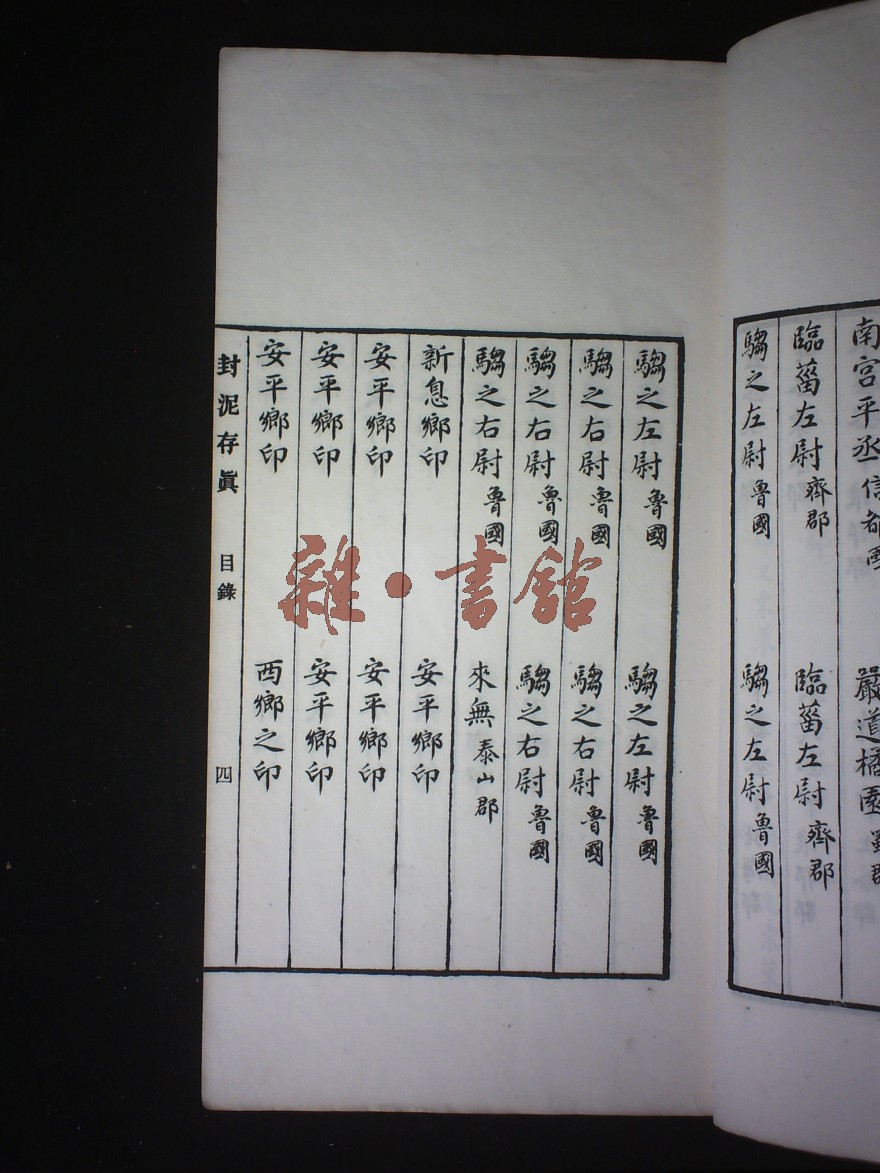 南宮平丞 信都國
嚴道橘園 蜀郡
臨菑左尉 齊郡
臨菑左尉 齊郡
騶之左尉 魯國
騶之左尉 魯國
騶之左尉 魯國
騶之左尉 魯國
騶之右尉 魯國
騶之右尉 魯國
騶之右尉 魯國
騶之右尉 魯國
騶之右尉 魯國
來無 泰山郡
新息鄉印
安平鄉印
安平鄉印
安平鄉印
安平鄉印
安平鄉印
安平鄉印
西鄉之印
封泥存眞 目錄 四
雜·書館